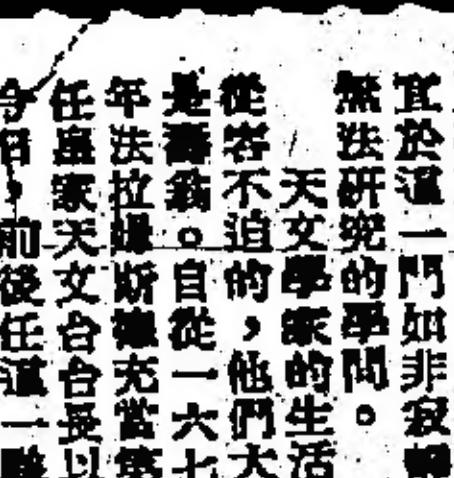 宜於這一門如非寂
無法研究的學問。
天文學家的生活
從容不迫的,他們大
是壽翁。自從一六七
年法拉姆斯德充當第
任皇家天文台台長以
今日,前後任這一職